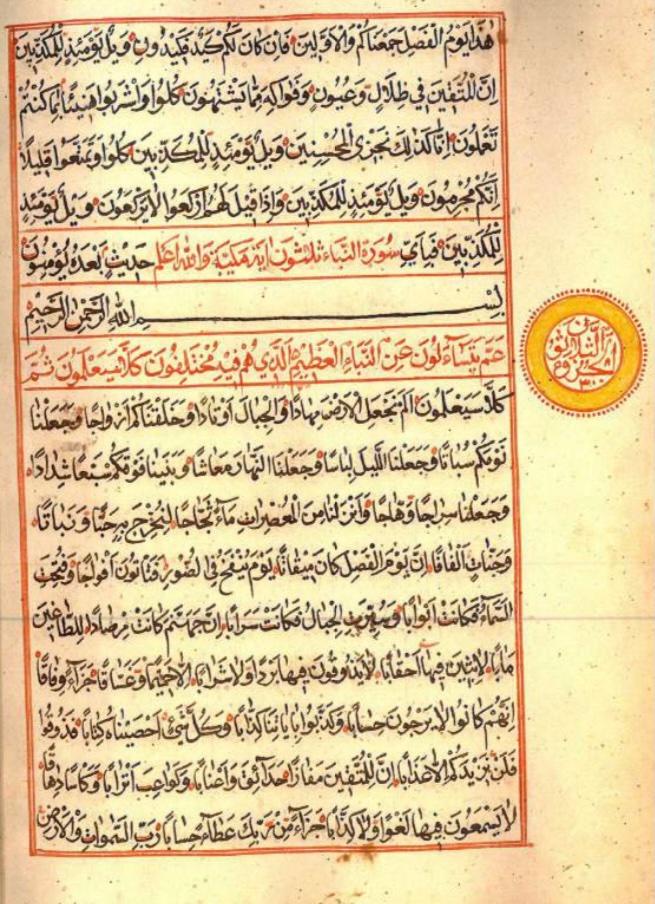 هٰذَا يَوْمُ الْفَصْلِ جَمَعْنَاكُمْ وَالْاَوَّلِينَ فَاِنْ كَانَ لَكُمْ كَيْدٌ فَكِيدُونِ وَيْلٌ يَوْمَئِذٍ لِلْمُكَذِّبِينَ
اِنَّ الْمُتَّقِينَ فِي ظِلَالٍ وَعُيُونٍ وَفَوَاكِهَ مِمَّا يَشْتَهُونَ كُلُوا وَاشْرَبُوا هَنِيئًا بِمَا كُنْتُمْ
تَعْمَلُونَ اِنَّا كَذٰلِكَ نَجْزِي الْمُحْسِنِينَ وَيْلٌ يَوْمَئِذٍ لِلْمُكَذِّبِينَ كُلُوا وَتَمَتَّعُوا قَلِيلًا
اِنَّكُمْ مُجْرِمُونَ وَيْلٌ يَوْمَئِذٍ لِلْمُكَذِّبِينَ وَاِذَا قِيلَ لَهُمُ ارْكَعُوا لَا يَرْكَعُونَ وَيْلٌ يَوْمَئِذٍ
لِلْمُكَذِّبِينَ فَبِاَيِّ سُورَةُ النَّبَاءِ ثَلٰثُونَ اٰيَةً مَكِّيَّةٌ وَاللّٰهُ اَعْلَمُ حَدِيثٍ بَعْدَهُ يُؤْمِنُونَ
بِسْمِ اللّٰهِ الرَّحْمٰنِ الرَّحِيمِ
عَمَّ يَتَسَاءَلُونَ عَنِ النَّبَاءِ الْعَظِيمِ الَّذِي هُمْ فِيهِ مُخْتَلِفُونَ كَلَّا سَيَعْلَمُونَ ثُمَّ
كَلَّا سَيَعْلَمُونَ اَلَمْ نَجْعَلِ الْاَرْضَ مِهَادًا وَالْجِبَالَ اَوْتَادًا وَخَلَقْنَاكُمْ اَزْوَاجًا وَجَعَلْنَا
نَوْمَكُمْ سُبَاتًا وَجَعَلْنَا اللَّيْلَ لِبَاسًا وَجَعَلْنَا النَّهَارَ مَعَاشًا وَبَنَيْنَا فَوْقَكُمْ سَبْعًا شِدَادًا
وَجَعَلْنَا سِرَاجًا وَهَّاجًا وَاَنْزَلْنَا مِنَ الْمُعْصِرَاتِ مَاءً ثَجَّاجًا لِنُخْرِجَ بِهِ حَبًّا وَنَبَاتًا
وَجَنَّاتٍ اَلْفَافًا اِنَّ يَوْمَ الْفَصْلِ كَانَ مِيقَاتًا يَوْمَ يُنْفَخُ فِي الصُّورِ فَتَاْتُونَ اَفْوَاجًا وَفُتِحَتِ
السَّمَاءُ فَكَانَتْ اَبْوَابًا وَسُيِّرَتِ الْجِبَالُ فَكَانَتْ سَرَابًا اِنَّ جَهَنَّمَ كَانَتْ مِرْصَادًا لِلطَّاغِينَ
مَاٰبًا لَابِثِينَ فِيهَا اَحْقَابًا لَا يَذُوقُونَ فِيهَا بَرْدًا وَلَا شَرَابًا اِلَّا حَمِيمًا وَغَسَّاقًا جَزَاءً وِفَاقًا
اِنَّهُمْ كَانُوا لَا يَرْجُونَ حِسَابًا وَكَذَّبُوا بِاٰيَاتِنَا كِذَّابًا وَكُلَّ شَيْءٍ اَحْصَيْنَاهُ كِتَابًا فَذُوقُوا
فَلَنْ نَزِيدَكُمْ اِلَّا عَذَابًا اِنَّ لِلْمُتَّقِينَ مَفَازًا حَدَائِقَ وَاَعْنَابًا وَكَوَاعِبَ اَتْرَابًا وَكَاْسًا دِهَاقًا
لَا يَسْمَعُونَ فِيهَا لَغْوًا وَلَا كِذَّابًا جَزَاءً مِنْ رَبِّكَ عَطَاءً حِسَابًا رَبِّ السَّمٰوَاتِ وَالْاَرْضِ
الجزء
الثلاثون
٣٠